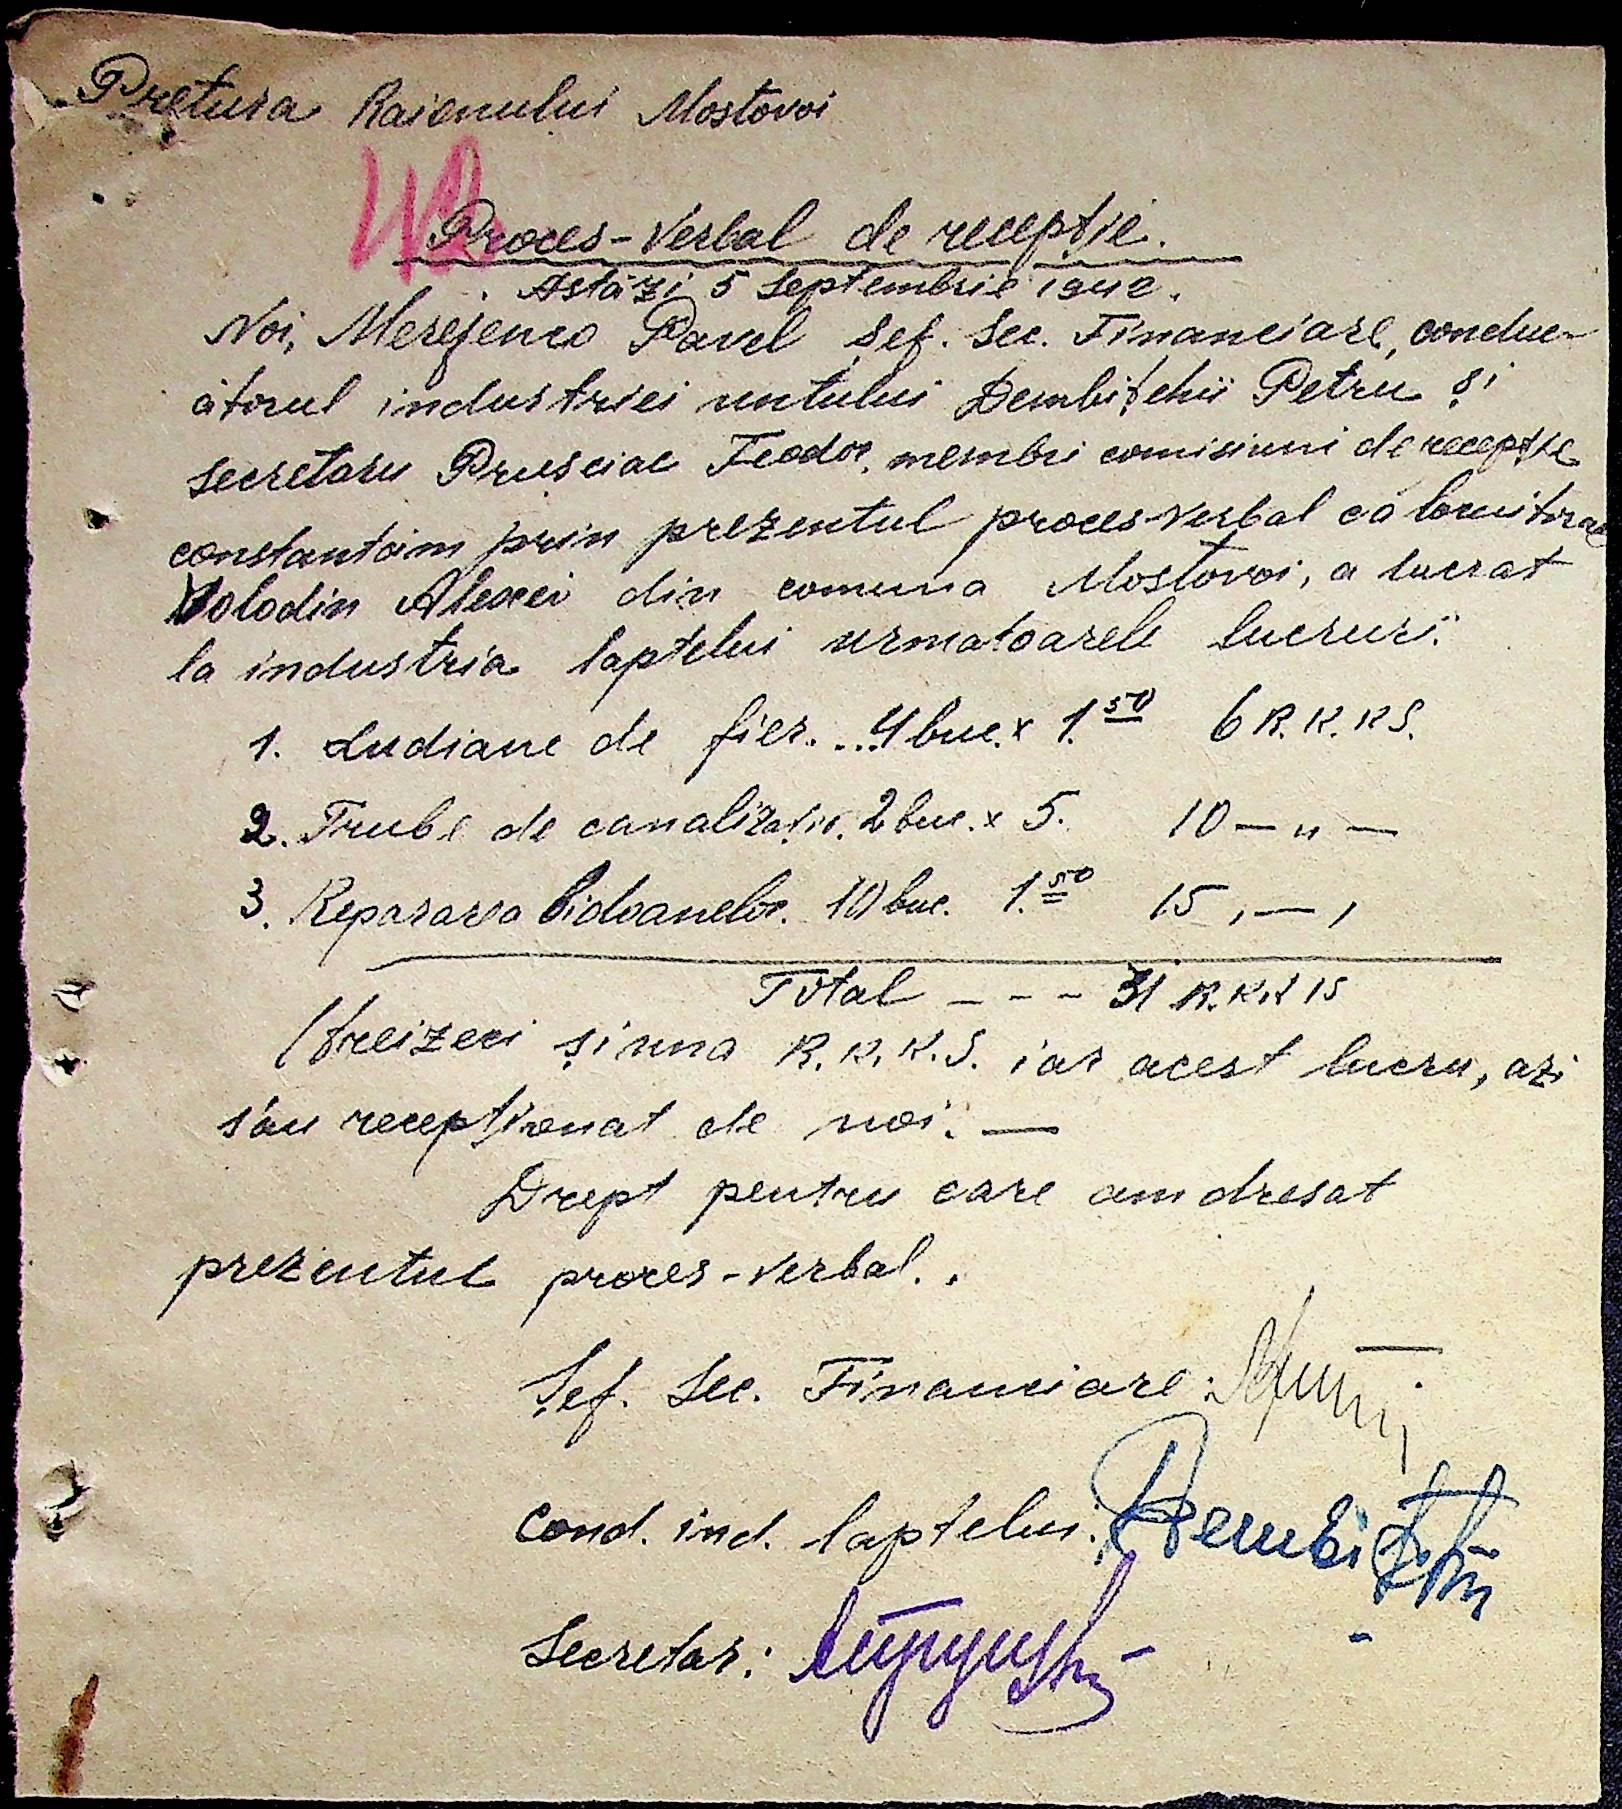 Pretura Raionului Mostovoi
Proces-Verbal de recepție.
Astăzi 5 Septembrie 1942.
Noi, Merejenco Pavel șef. Sec. Financiare, conduc-
ătorul industriei untului Dembițchii Petru și
secretaru Prusciac Feodor, membri comisiuni de recepție
constantăm prin prezentul proces-verbal că locuitorae
Volodin Alexei din comuna Mostovoi, a lucrat
la industria laptelui urmatoarele lucruri:
1. Ludiane de fier...4 buc. x 1.50 6 R.K.K.S.
2. Trube de canalizație. 2 buc. x 5. 10 — „ —
3. Repararea bidoanelor. 10 buc. 1.50 15 , — ,
Total - - - 31 R.K.K.S
(treizeci și una R.K.K.S. iar acest lucru, azi
s'au recepționat de noi. —
Drept pentru care am dresat
prezentul proces-verbal..
Șef. Sec. Financiare:
Cond. ind. laptelui.
Secretar: